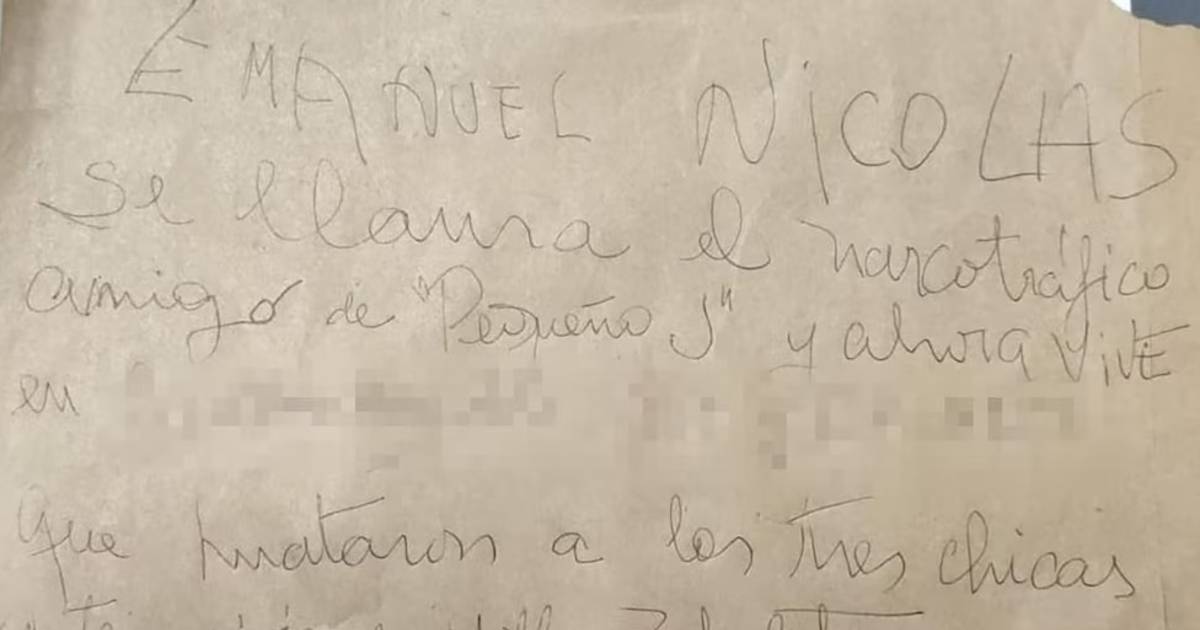 EMANUEL NicOLAS
Se llama el narcotráfico
amigo de "Pequeño J" y ahora ViVE
en
que mataron a las tres chicas